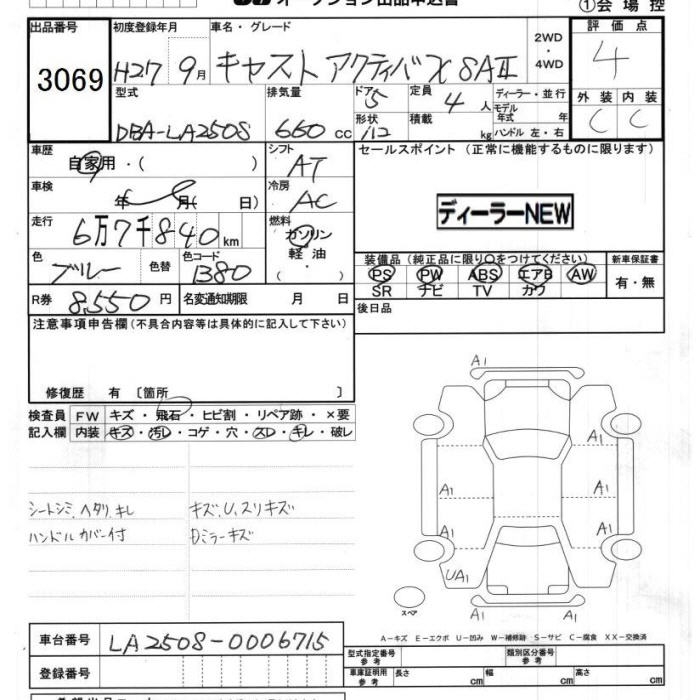 オークション出品申込書 ①会場控
出品番号 初度登録年月 車名・グレード 2WD 評価点
3069 H27 9月 キャスト アクティバ X SAⅡ ・4WD 4
型式 排気量 ドア 定員 ディーラー・並行 外装 内装
DBA-LA250S 660 cc 5 4人 モデル年式 年 C C
形状 112 積載 kg ハンドル 左・右
車歴 自家用・( ) シフト AT セールスポイント (正常に機能するものに限ります)
車検 年 月( 日) 冷房 AC
ディーラーNEW
走行 6万7千840km 燃料 ガソリン
軽油
・( )
色 ブルー 色替 色コード B80 装備品(純正品に限り○をつけてください) 新車保証書
PS PW ABS エアB AW 有・無
SR ナビ TV カワ
R券 8,550円 名変通知期限 月 日 後日品
注意事項申告欄(不具合内容等は具体的に記入して下さい)
修復歴 有 〔箇所 〕
検査員 FW キズ・飛石・ヒビ割・リペア跡・×要
記入欄 内装 キズ・汚レ・コゲ・穴・スレ・キレ・破レ
シートシミ、ヘタリ、キレ キズ、U、スリキズ
ハンドルカバー付 Dミラーキズ
A1
A1
A1 A1
A1 A1
UA1
スペア A1
A-キズ E-エクボ U-凹み W-補修跡 S-サビ C-腐食 XX-交換済
車台番号 LA250S-0006715
型式指定番号 参考 類別区分番号 参考
登録番号 車庫証明用 参考 長さ cm 幅 cm 高さ cm